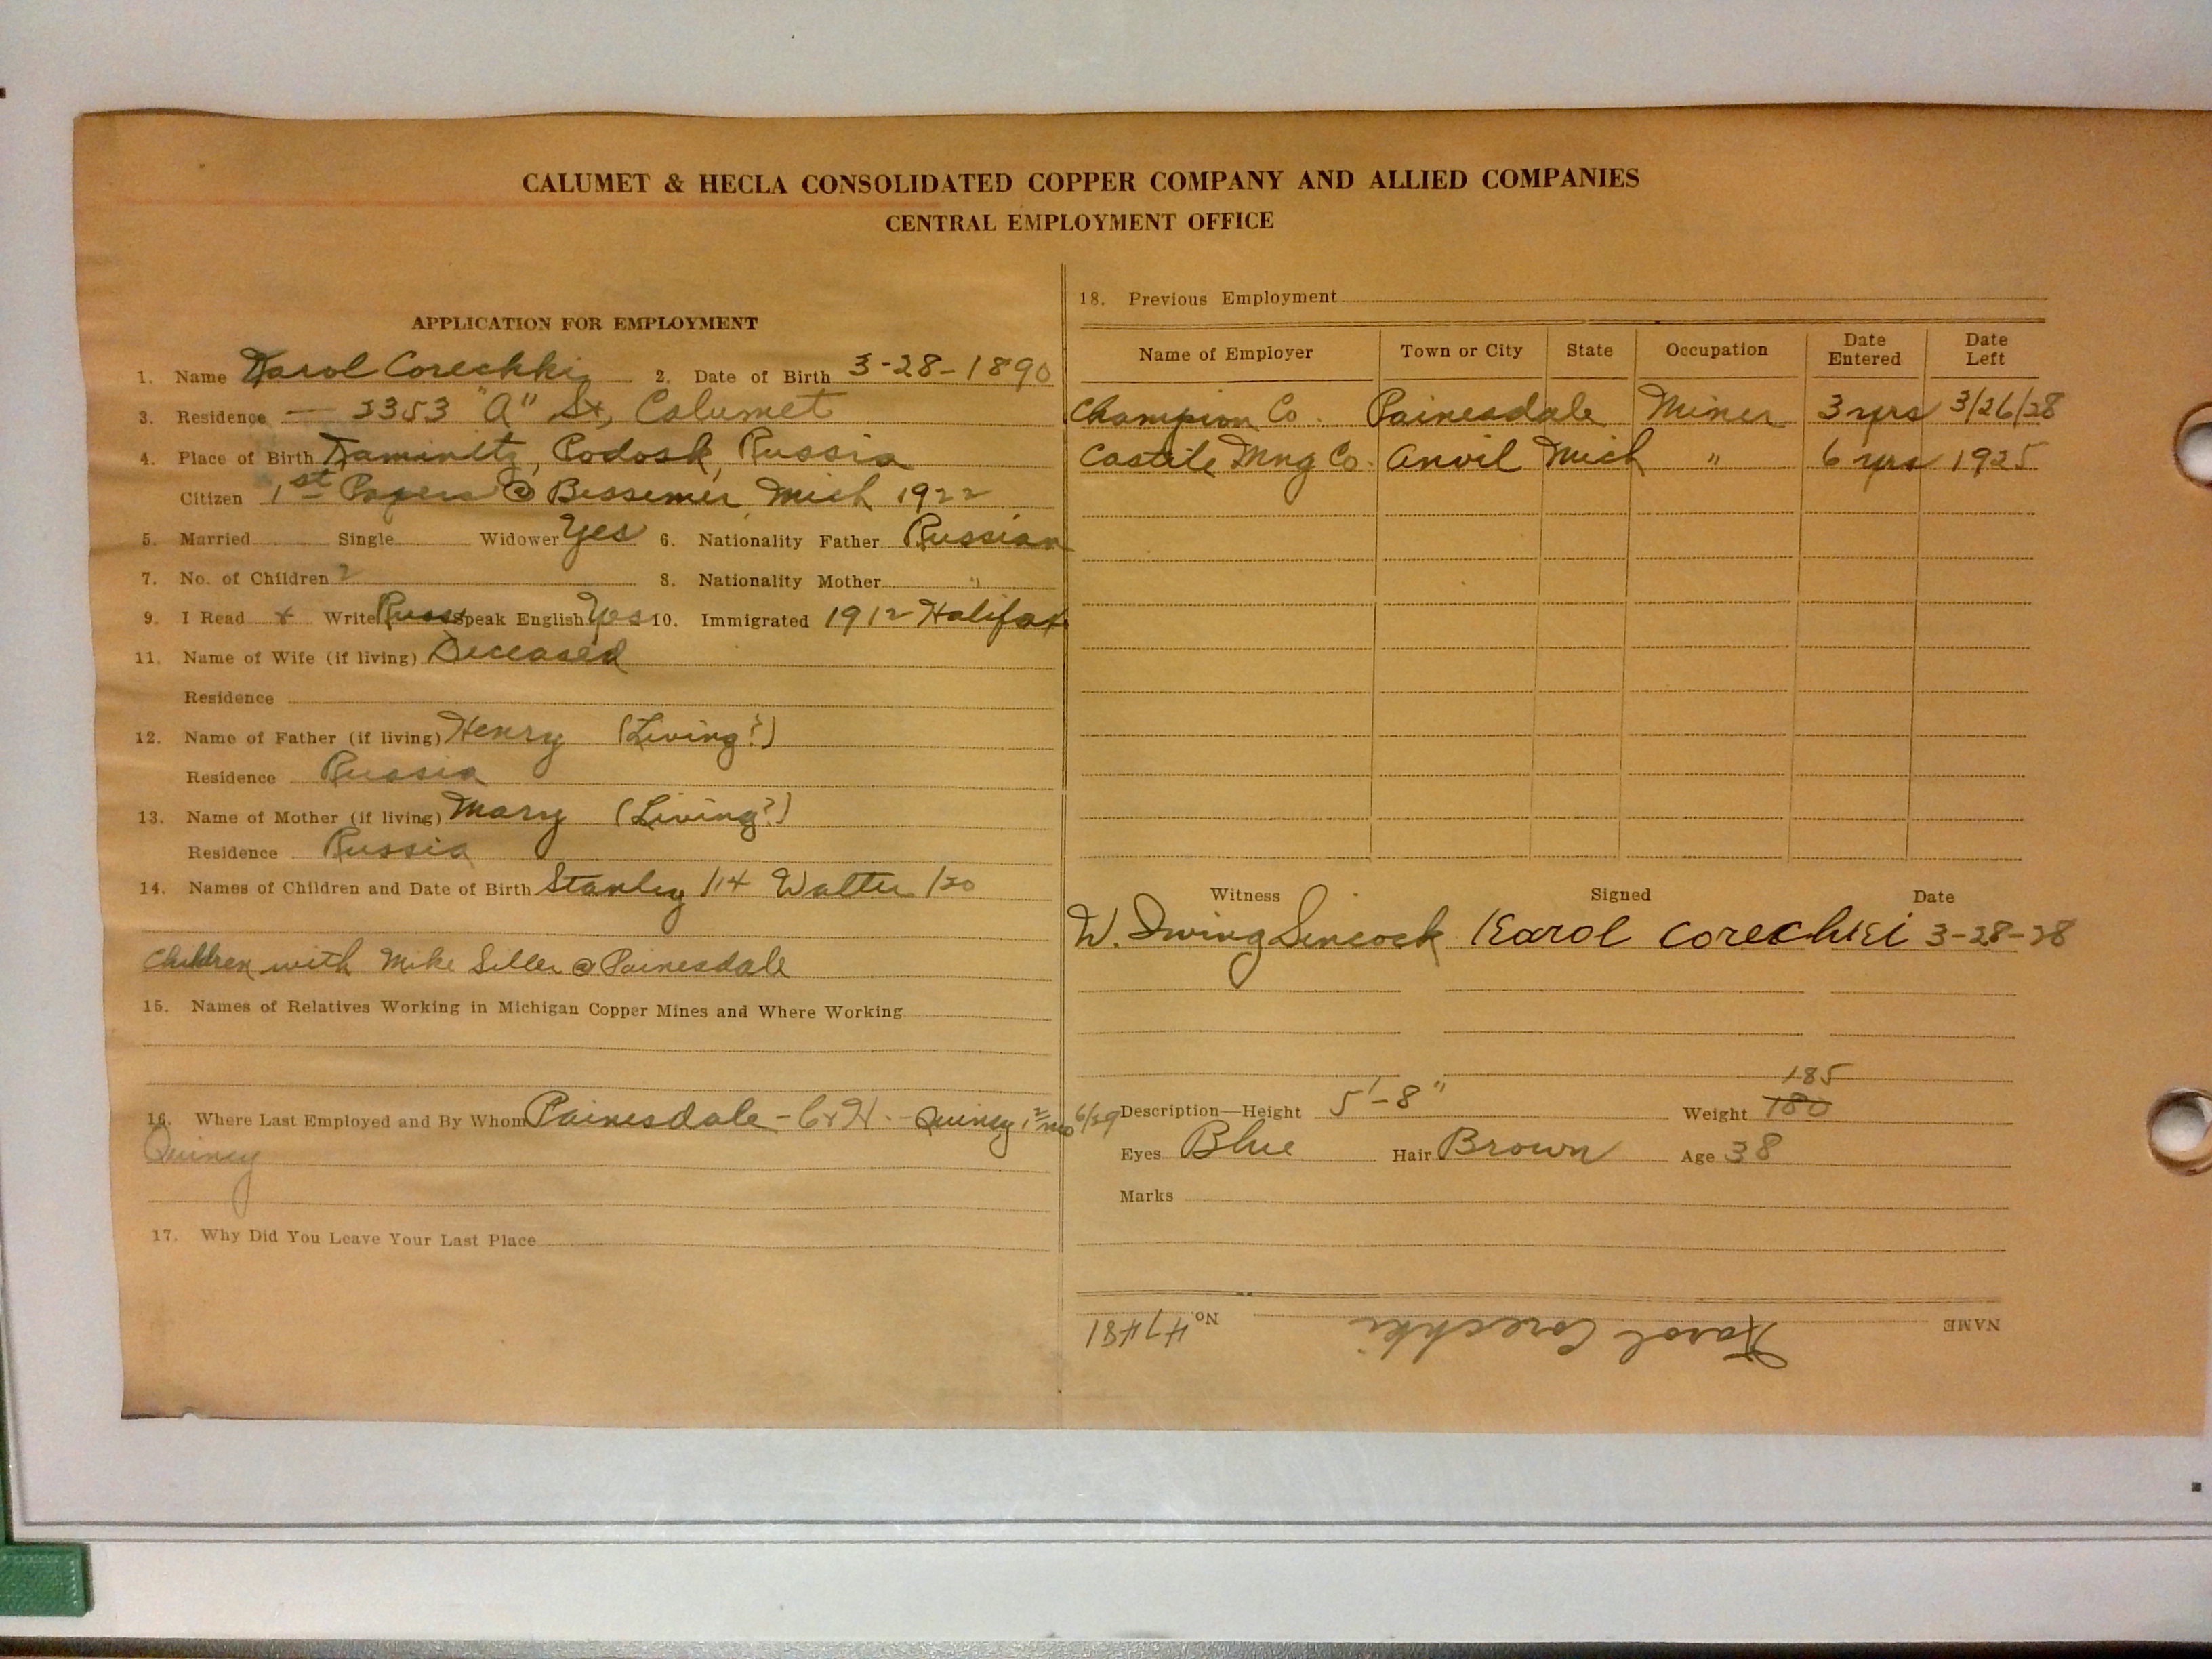 CALUMET & HECLA CONSOLIDATED COPPER COMPANY AND ALLIED COMPANIES
CENTRAL EMPLOYMENT OFFICE
APPLICATION FOR EMPLOYMENT
1. Name Karol Corechki 2. Date of Birth 3-28-1890
3. Residence — 2353 "A" St, Calumet
4. Place of Birth Kamintz, Podosk, Russia
Citizen 1st Papers @ Bessemer, Mich 1922
5. Married Single Widower Yes 6. Nationality Father Russian
7. No. of Children 2 8. Nationality Mother "
9. I Read + Write Russ Speak English Yes 10. Immigrated 1912 Halifax
11. Name of Wife (if living) Deceased
Residence
12. Name of Father (if living) Henry (Living?)
Residence Russia
13. Name of Mother (if living) Mary (Living?)
Residence Russia
14. Names of Children and Date of Birth Stanley /14 Walter /20
Children with Mike Siller @ Painesdale
15. Names of Relatives Working in Michigan Copper Mines and Where Working
16. Where Last Employed and By Whom Painesdale - C+H - Quincy, 6/29
Quincy
17. Why Did You Leave Your Last Place
18. Previous Employment
Name of Employer Town or City State Occupation Date Entered Date Left
Champion Co. Painesdale Miner 3 yrs 3/26/28
Castile Mng Co. Anvil Mich " 6 yrs 1925
Witness Signed Date
W. Irwing Sincock Karol Corechki 3-28-28
185
Description—Height 5'-8" Weight 180
Eyes Blue Hair Brown Age 38
Marks
NAME Karol Corechki No. 47481